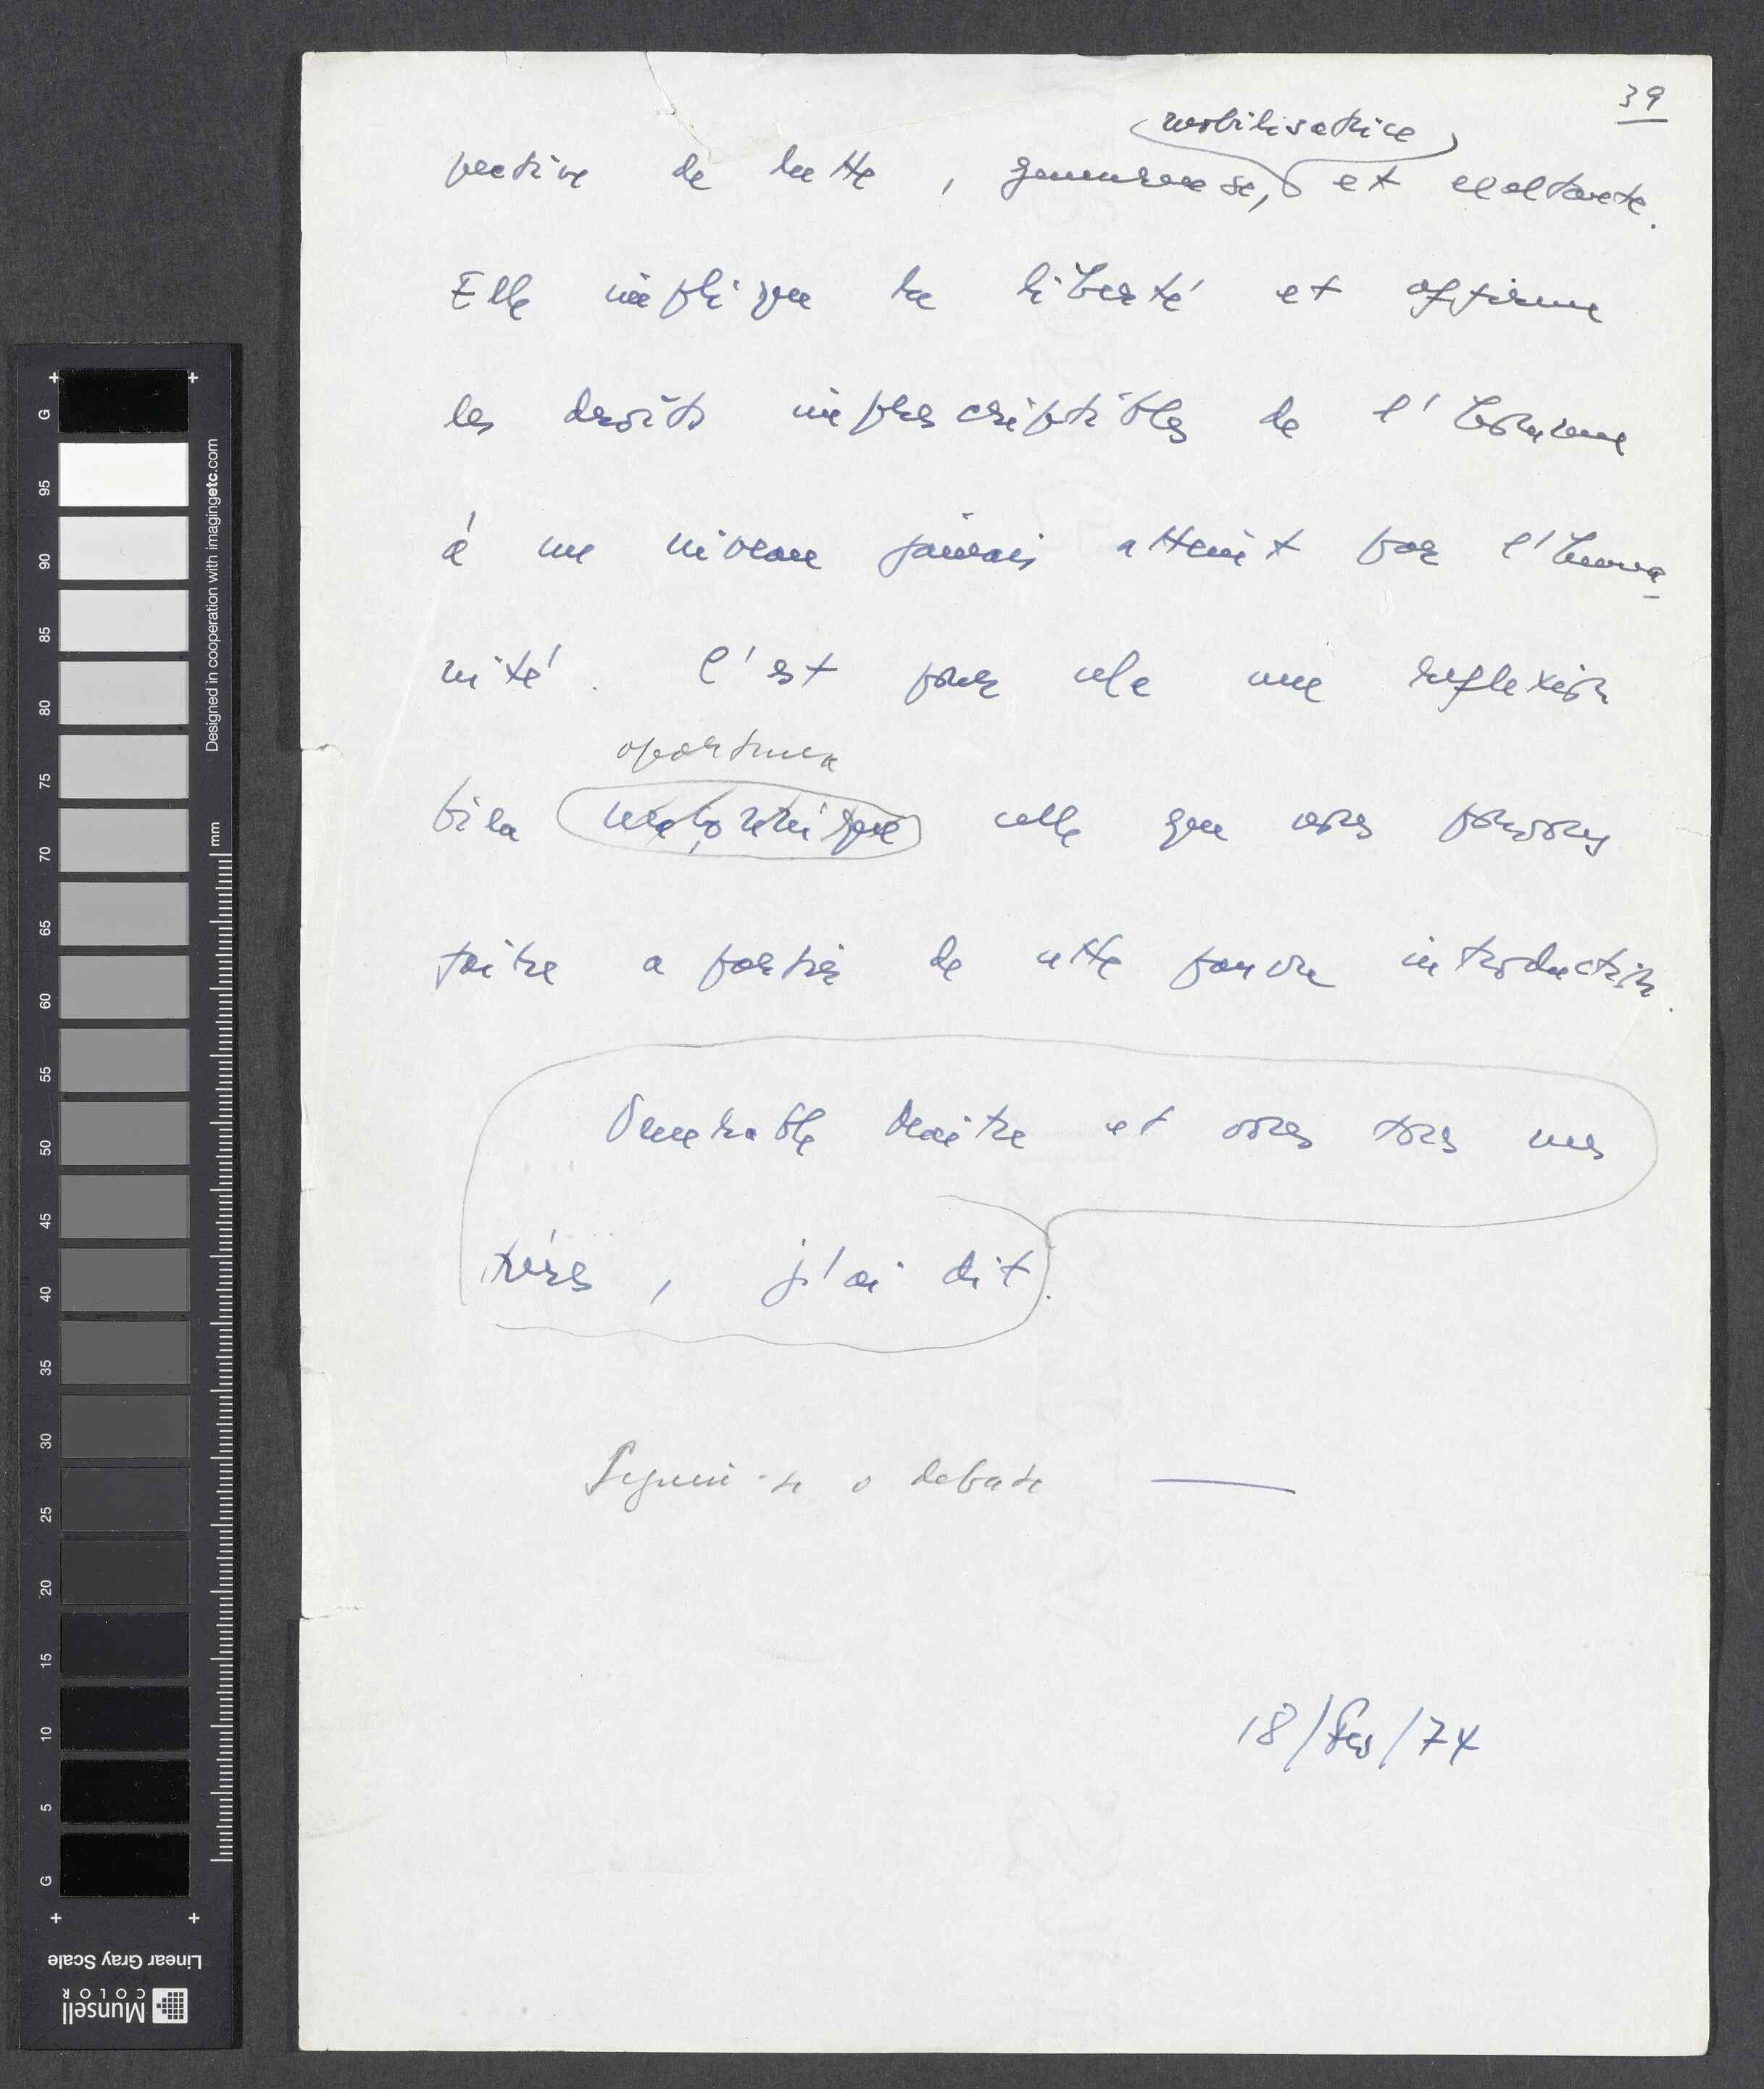 39
mobilisatrice
pective de lutte, genereuse, et exaltante.
Elle implique la liberté et affirme
les droits imprescriptibles de l'homme
á un niveau jamais atteint par l'huma
nité. C'est pour cela une reflexion
oportuna
bien maçonnique celle que nous pouvons
faire a partir de cette pauvre introduction.
Venerable Maitre et vous tous mes
fréres, j'ai dit.
Seguiu-se o debate
18/Fev/74
G
95
90
85
80
75
70
65
60
55
50
45
40
35
30
25
20
15
10
5
G
mm
Designed in cooperation with imagingetc.com
Linear Gray Scale
Munsell
COLOR